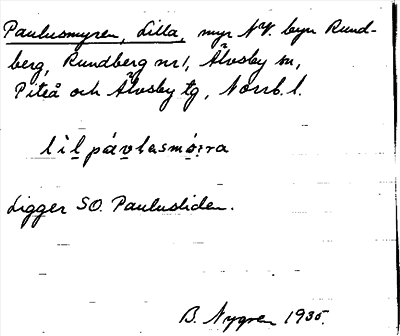 Paulusmyren, Lilla, myr NV. byn Rund-
berg, Rundberg nr 1, Älvsby sn,
Piteå och Älvsby tg, Norrb. l.
lil pávlasmó:ra
Ligger SO. Paulusliden.
B. Nygren 1935.